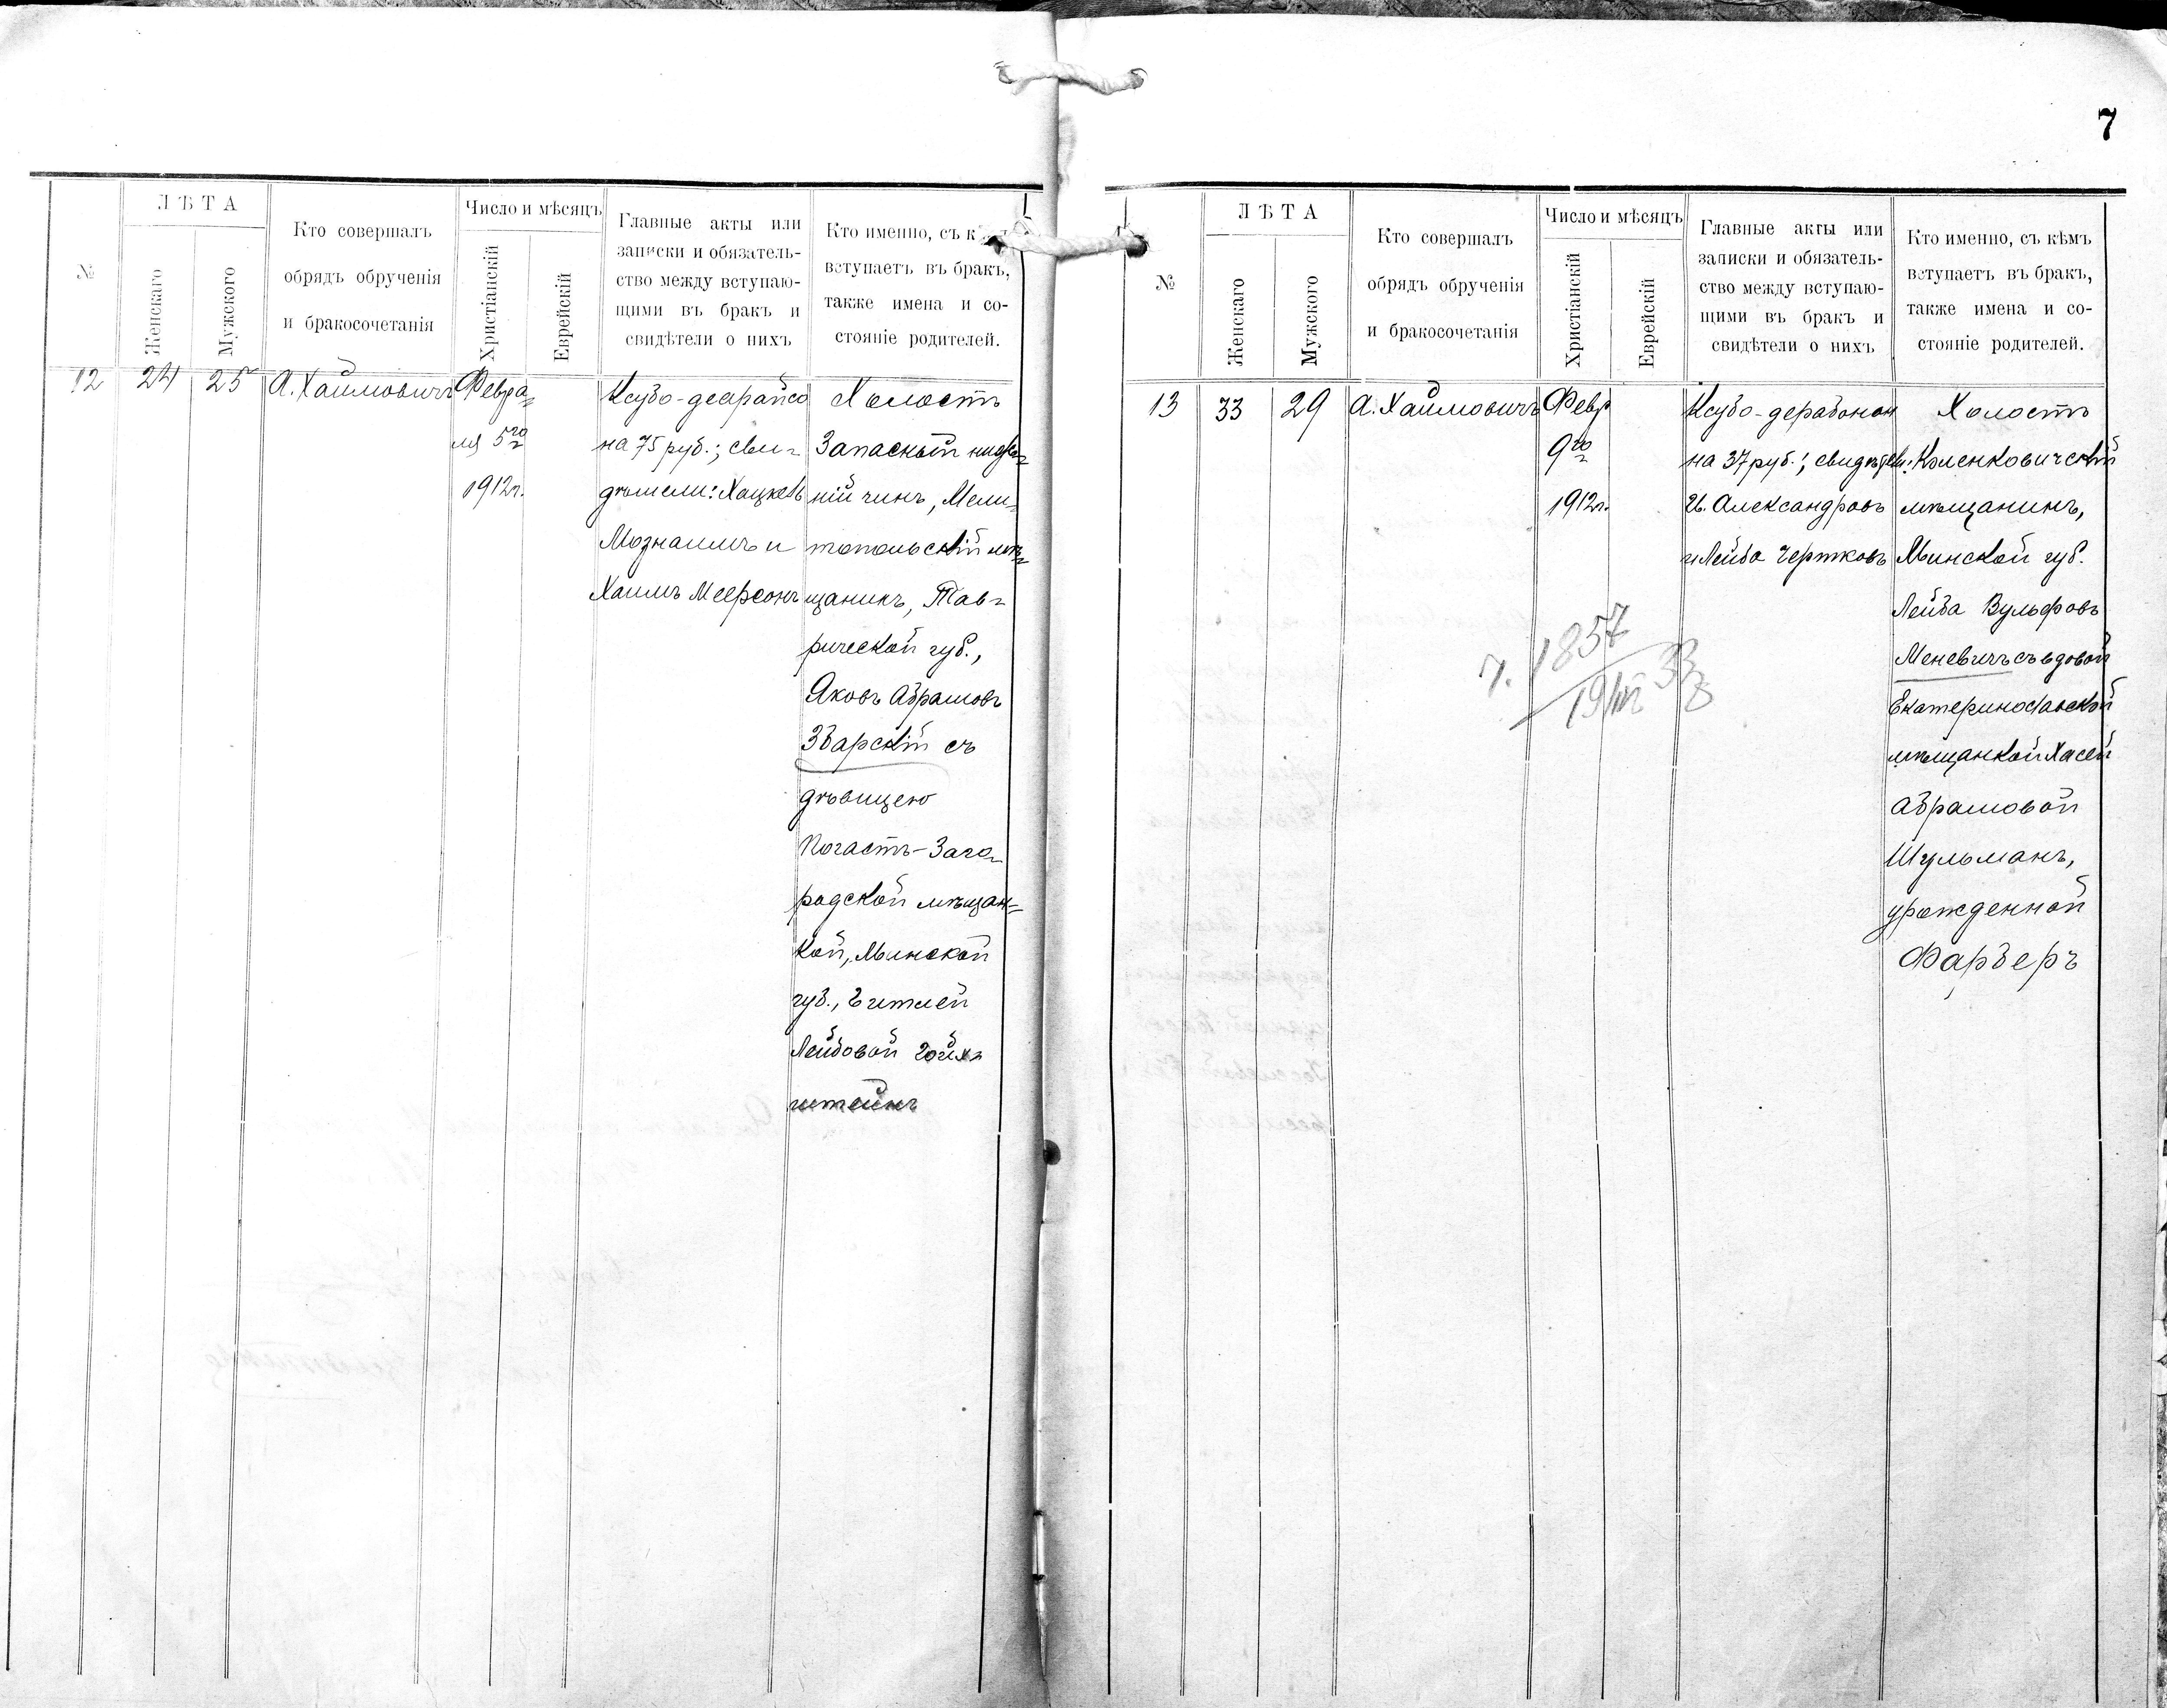 7
№
ЛѢТА
Женскаго
Мужского
Кто совершалъ
обрядъ обрученія
и бракосочетанія
Число и мѣсяцъ
Христіанскій
Еврейскій
Главные акты или
записки и обязатель-
ство между вступаю-
щими въ бракъ и
свидѣтели о нихъ
Кто именно, съ
вступаетъ въ бракъ,
также имена и со-
стояніе родителей.
12
24
25
А. Хаимовичъ
Февра=
ля 5го
1912г.
Ксубо-деарайсо
на 75 руб.; сви-
дѣтели: Хацкель
и
Хаимъ Меерсонъ
Холостъ
Запасный ниж-
ній чинъ, Мели-
топольскій мѣ-
щанинъ, Тав-
рической губ.,
Яковъ Абрамовъ
Збарскій съ
дѣвицею
Погостъ-Заго-
родской мѣщан=
кой, Минской
губ.,
Лейбовой
штейнъ
№
ЛѢТА
Женскаго
Мужского
Кто совершалъ
обрядъ обрученія
и бракосочетанія
Число и мѣсяцъ
Христіанскій
Еврейскій
Главные акты или
записки и обязатель-
ство между вступаю-
щими въ бракъ и
свидѣтели о нихъ
Кто именно, съ кѣмъ
вступаетъ въ бракъ,
также имена и со-
стояніе родителей.
13
33
29
А. Хаимовичъ
Февр
9го
1912г.
Ксубо-дерабонон
на 37 руб.;
Александровъ
и Лейба Чертковъ
Холостъ
мѣщанинъ,
Минской губ.
Лейба Вульфовъ
Меневичъ съ вдовой
Екатеринославской
мѣщанкой Хасей
Абрамовой
Шульманъ,
урожденной
Фарберъ
1857